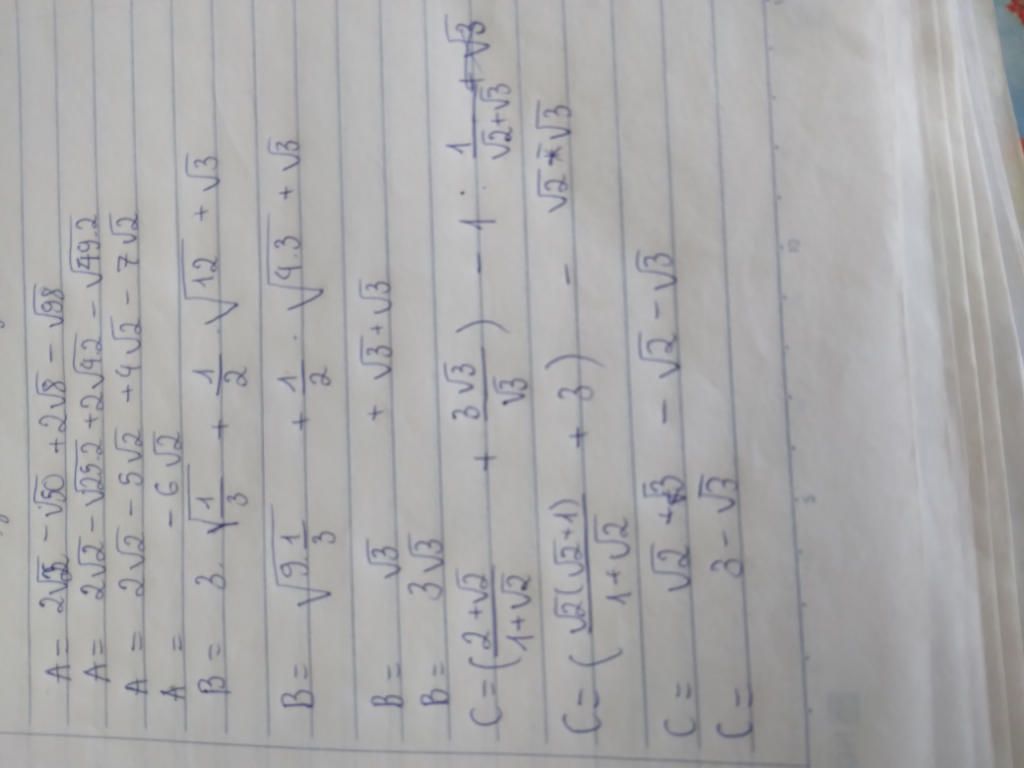 A = 2√2 - √50 + 2√8 - √98
A = 2√2 - √25.2 + 2√4.2 - √49.2
A = 2√2 - 5√2 + 4√2 - 7√2
A = - 6√2
B = 3. √1/3 + 1/2 . √12 + √3
B = √9 1/3 + 1/2 . √4.3 + √3
B = √3 + √3 + √3
B = 3√3
C = ( 2+√2 / 1+√2 + 3√3 / √3 ) - 1 : 1 / √2+√3
C = ( √2(√2+1) / 1+√2 + 3 ) - √2+√3
C = √2 + 3 - √2 - √3
C = 3 - √3